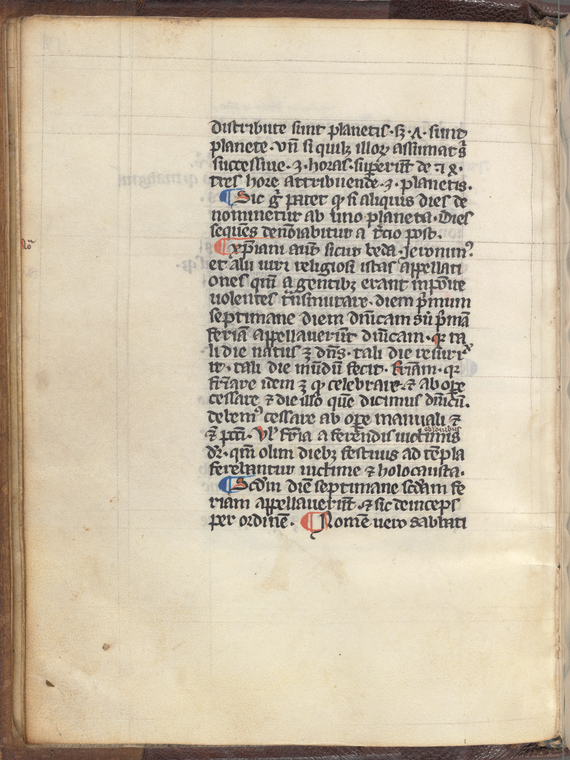 distribute sunt planetis. sꝫ .7. sunt
planete. vn̄ si quilꝫ illoꝝ assumat̄
successiue .3. horas. superīt de 7
tres hore attribuende .3. planetis.
Sic g̃ patet ꝙ si aliquis dies de
nominetur ab uno planeta. Dies
seques denōiabitur a t̄cio post.
Xp̄iani aut̄ sicut beda. Jeronim᷒.
et alii uiri religiosi istas appellati
ones qūi a gentibꝫ erant imposite
uolentes t̃nsmutare. diem p̄mum
septimane diem dn̄icam siū p̄mā
feriā appellauerūt dn̄icam. qꝛ ta
li die natus ē dn̄s. tali die resurrx
it. tali die mūdū fecit. friam. qꝛ
friare idem ē ꝙ celebrare. ⁊ ab oꝑe
cessare ⁊ die illo quē dicimus dn̄icū.
debem᷒ cessare ab oꝑe manuali ⁊
⁊ pcc̄i. Vl̓ fria a ferendis uictimis
dr̄. qm̄ olim diebꝫ festiuis ad tēpla
ferebantur uictime ⁊ holocausta.
Scd̄m diē septimane scd̄am fe
riam appellauerūt. ⁊ sic deinceps
per ordinē. Nomē uero sabbati